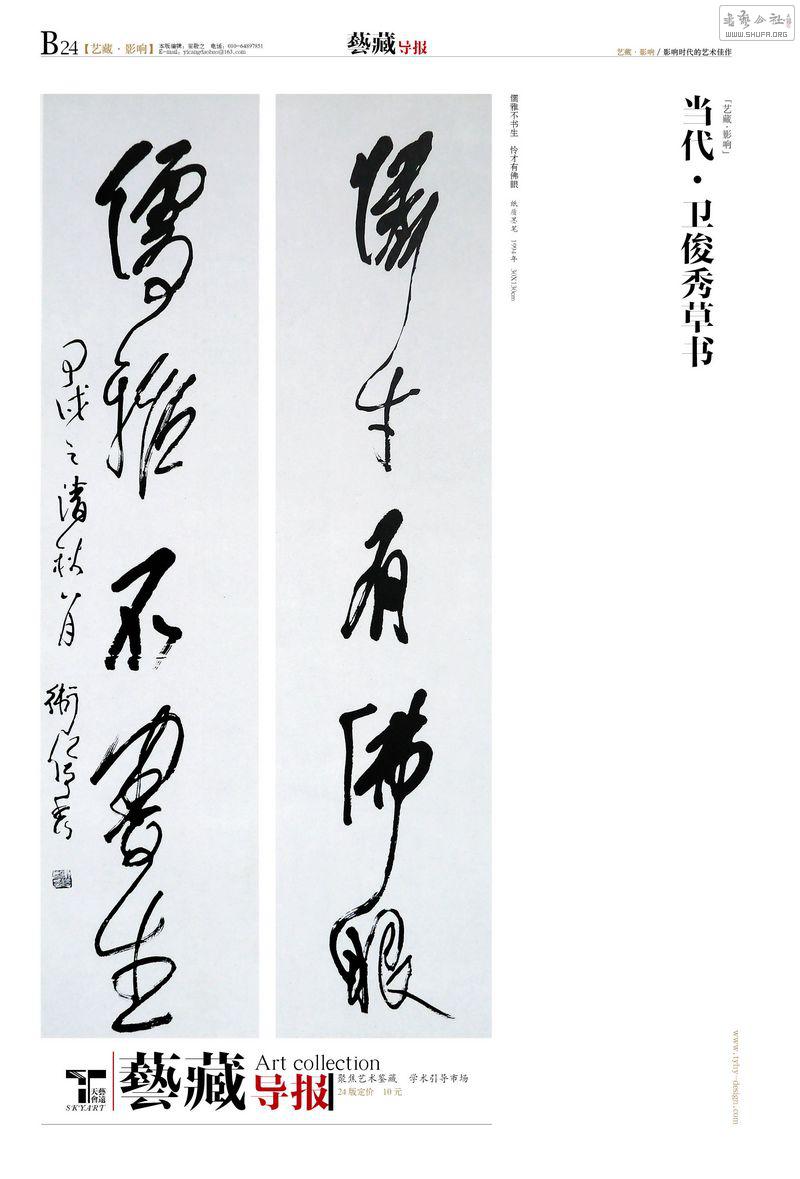 書藝公社
WWW.SHUFA.ORG
B24【艺藏·影响】
电话：010-64897851
E-mail：yicangdaobao@163.com
藝藏导报
艺藏·影响 / 影响时代的艺术佳作
「艺藏·影响」
当代·卫俊秀草书
儒雅不书生 怜才有佛眼 纸质墨笔 1994年 30X130cm
憐才有佛眼
儒雅不書生
甲戌之清秋八月 衛俊秀
天藝會遠
SKYART
藝藏导报
Art collection
聚焦艺术鉴藏 学术引导市场
24版定价 10元
www.tyhy-design.com